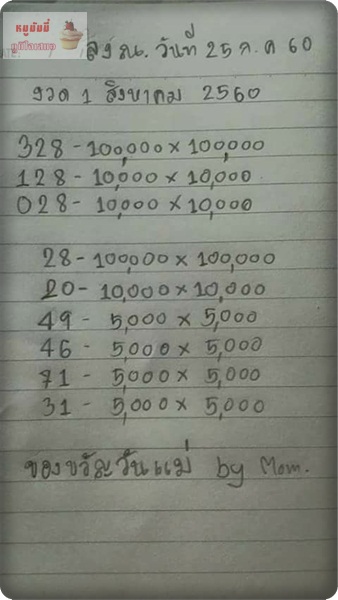 หมูบินมี่
ภูมิใจเสนอ
ลง ณ. วันที่ 25 ก. ค 60
งวด 1 สิงหาคม 2560
328 - 100,000 x 100,000
128 - 10,000 x 10,000
028 - 10,000 x 10,000
28 - 100,000 x 100,000
20 - 10,000 x 10,000
49 - 5,000 x 5,000
46 - 5,000 x 5,000
71 - 5,000 x 5,000
31 - 5,000 x 5,000
ของขวัญวันแม่ by Mom.